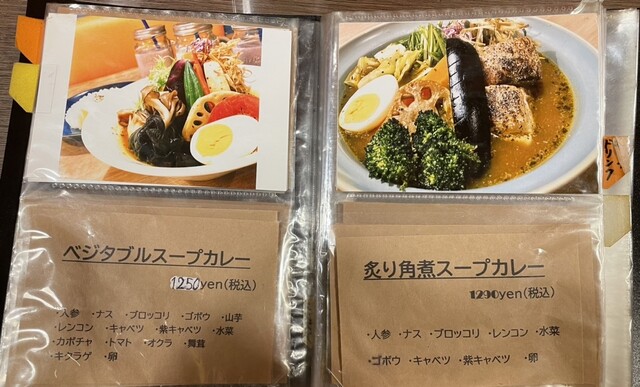 ベジタブルスープカレー
1250yen(税込)
・人参 ・ナス ・ブロッコリ ・ゴボウ ・山芋
・レンコン ・キャベツ ・紫キャベツ ・水菜
・カボチャ ・トマト ・オクラ ・舞茸
・キクラゲ ・卵
炙り角煮スープカレー
1290yen(税込)
・人参 ・ナス ・ブロッコリ ・レンコン ・水菜
・ゴボウ ・キャベツ ・紫キャベツ ・卵
ドリンク